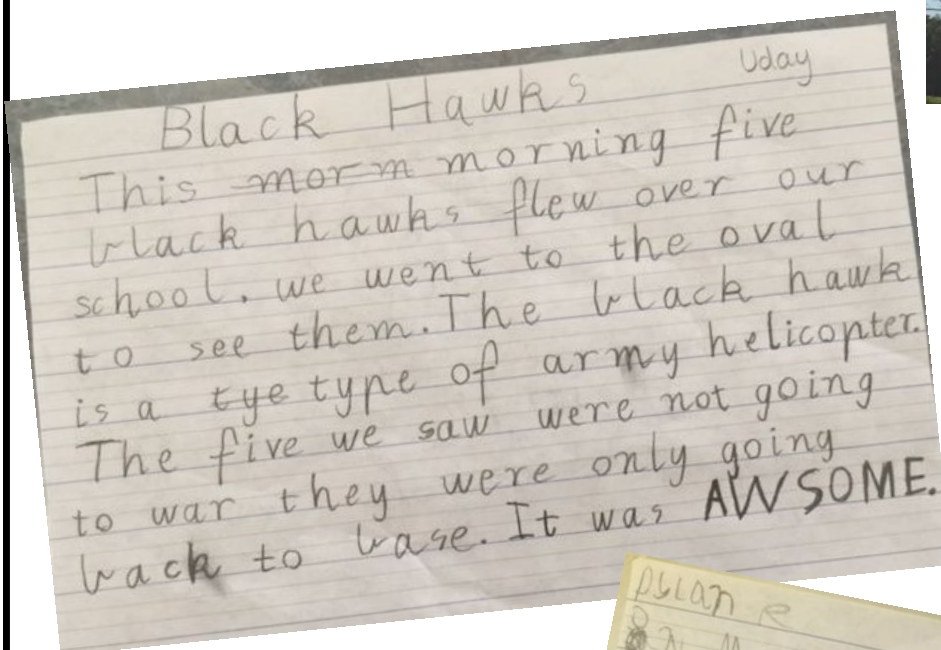 Uday
Black Hawks
This morm morning five
black hawks flew over our
school. we went to the oval
to see them. The black hawk
is a tye type of army helicopter.
The five we saw were not going
to war they were only going
back to base. It was AWSOME.